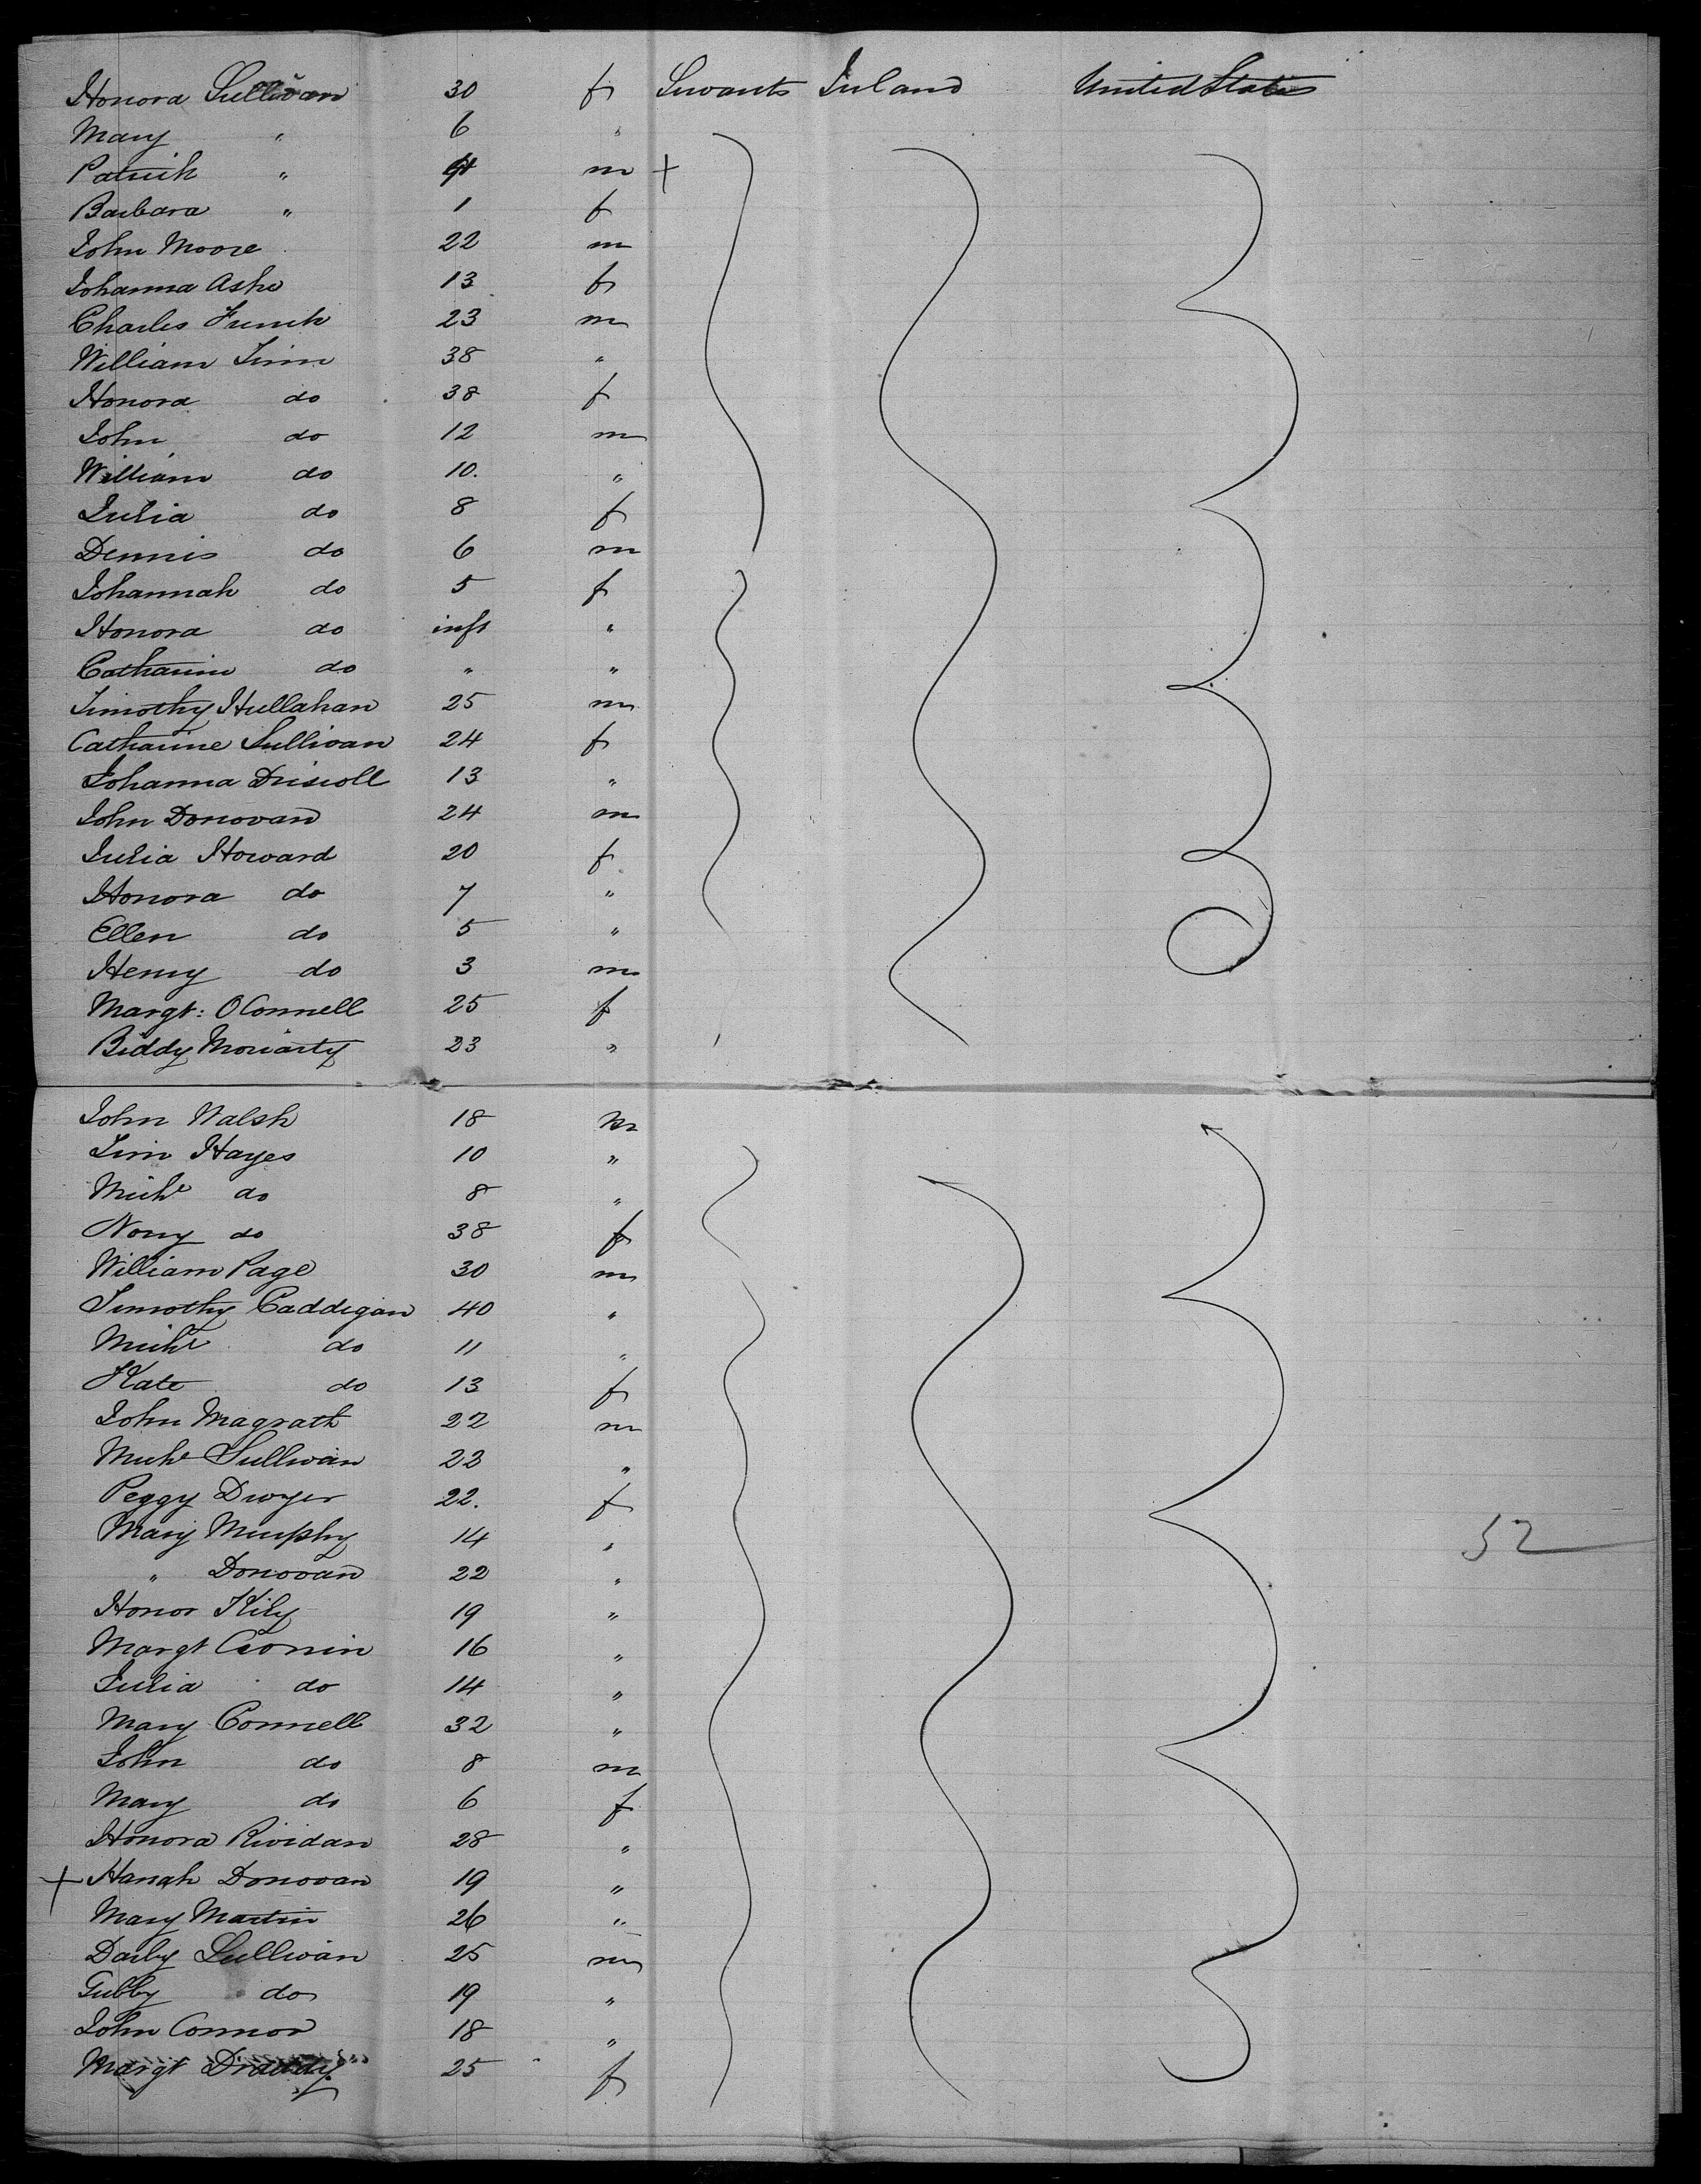 Honora Sullivan 30 f Servants Ireland United States
Mary " 6 "
Patrick " 4 m +
Barbara " 1 f
John Moore 22 m
Johanna Ashe 13 f
Charles French 23 m
William Finn 38 "
Honora do 38 f
John do 12 m
William do 10. "
Julia do 8 f
Dennis do 6 m
Johannah do 5 f
Honora do inft "
Catharine do " "
Timothy Hullahan 25 m
Catharine Sullivan 24 f
Johanna Driscoll 13 "
John Donovan 24 m
Julia Howard 20 f
Honora do 7 "
Ellen do 5 "
Henry do 3 m
Margt: OConnell 25 f
Biddy Moriarty 23 "
John Walsh 18 m
Tim Hayes 10 "
Michl do 8 "
Nony do 38 f
William Page 30 m
Timothy Caddigan 40 "
Michl do 11 "
Kate do 13 f
John Magrath 22 m
Michl Sullivan 23 "
Peggy Dwyer 22. f
Mary Murphy 14 "
52
" Donovan 22 "
Honor Kily 19 "
Margt Cronin 16 "
Julia do 14 "
Mary Connell 32 "
John do 8 m
Mary do 6 f
Honora Rividan 28 "
+ Hanah Donovan 19 "
Mary Martin 26 "
Darby Sullivan 25 m
Gubby do 19 "
John Connor 18 "
Margt Draddy 25 f